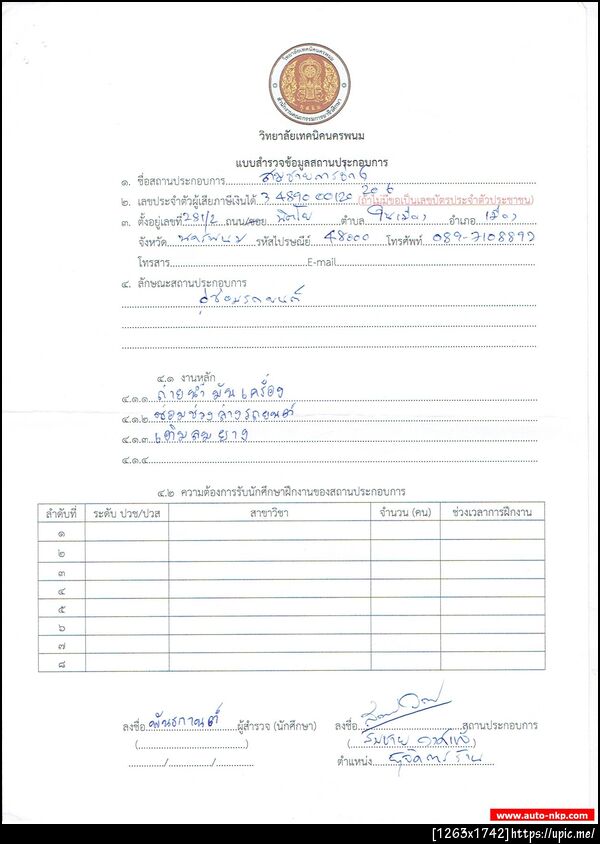 วิทยาลัยเทคนิคนครพนม
สำนักงานคณะกรรมการการอาชีวศึกษา
วิทยาลัยเทคนิคนครพนม
แบบสำรวจข้อมูลสถานประกอบการ
๑. ชื่อสถานประกอบการ สมชายการช่าง
๒. เลขประจำตัวผู้เสียภาษีเงินได้ (ถ้าไม่มีขอเป็นเลขบัตรประจำตัวประชาชน)
๓. ตั้งอยู่เลขที่ 281/2 ถนน/ซอย นิตโย ตำบล ในเมือง อำเภอ เมือง
จังหวัด นครพนม รหัสไปรษณีย์ 48000 โทรศัพท์
โทรสาร E-mail
๔. ลักษณะสถานประกอบการ
อู่ซ่อมรถยนต์
๔.๑ งานหลัก
๔.๑.๑ ถ่ายน้ำมันเครื่อง
๔.๑.๒ ซ่อมช่วงล่างรถยนต์
๔.๑.๓ เติมลมยาง
๔.๑.๔
๔.๒ ความต้องการรับนักศึกษาฝึกงานของสถานประกอบการ
ลำดับที่ ระดับ ปวช/ปวส สาขาวิชา จำนวน (คน) ช่วงเวลาการฝึกงาน
๑
๒
๓
๔
๕
๖
๗
๘
ลงชื่อ พันธกานต์ ผู้สำรวจ (นักศึกษา) ลงชื่อ สถานประกอบการ
(สมชาย)
ตำแหน่ง ผู้จัดการร้าน
www.auto-nkp.com
[1263x1742]https://upic.me/